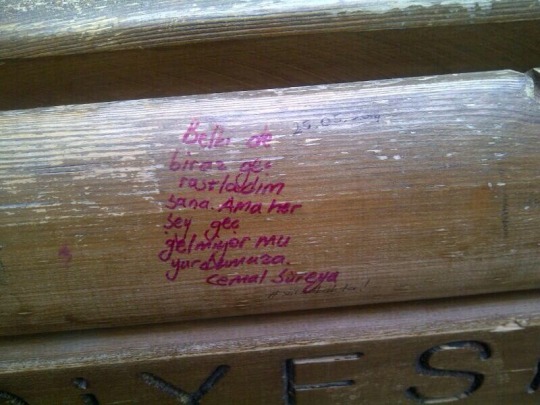 Belki de
biraz geç
rastladım
sana. Ama her
şey geç
gelmiyor mu
yurdumuza.
Cemal Süreya
DİYESİ